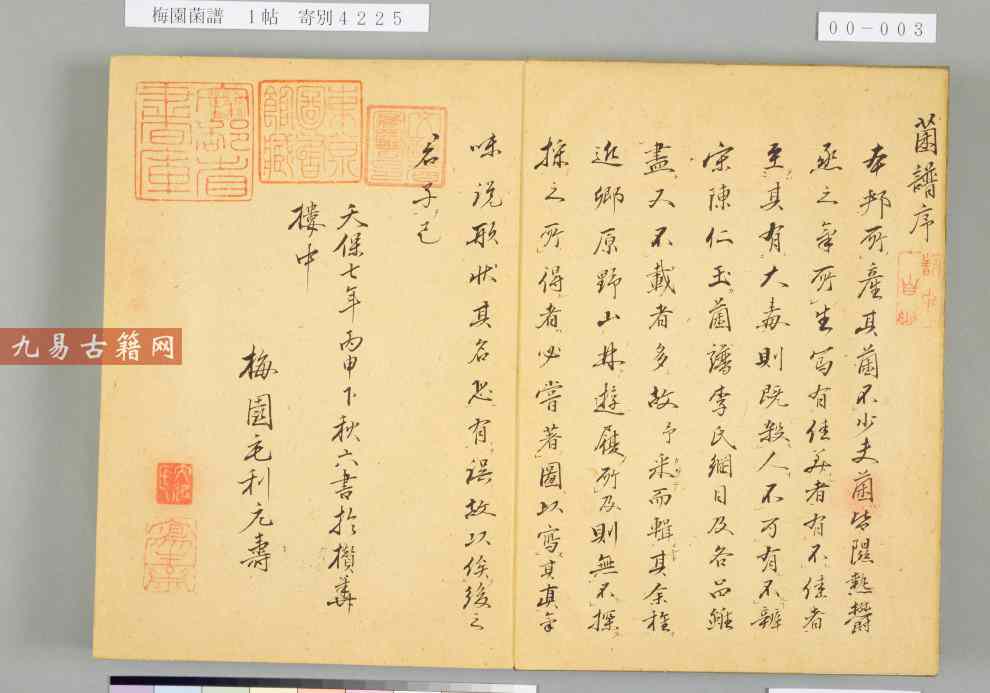 梅園菌譜 1帖 寄別4225
00-003
菌譜序
本邦所産其菌不少夫菌皆隰熱欝
蒸之氣所生寫有佳美者有不佳者
至其有大毒則既殺人不可有不辨
宋陳仁玉菌譜李氏綱目及各品雖
盡又不載者多故予采而輯其余在
近郷原野山林遊履所及則無不探
採之所得者必嘗著圖以寫其真氣
味説形状其名恐有誤故以俟後之
君子已
天保七年丙申下秋六書於攅華
樓中
梅園毛利元壽
東京圖書館藏
九易古籍网